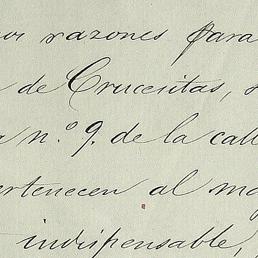 por razones para
de Crucesitas, s
a n.º 9. de la call
ertenecen al ma
indispensable,